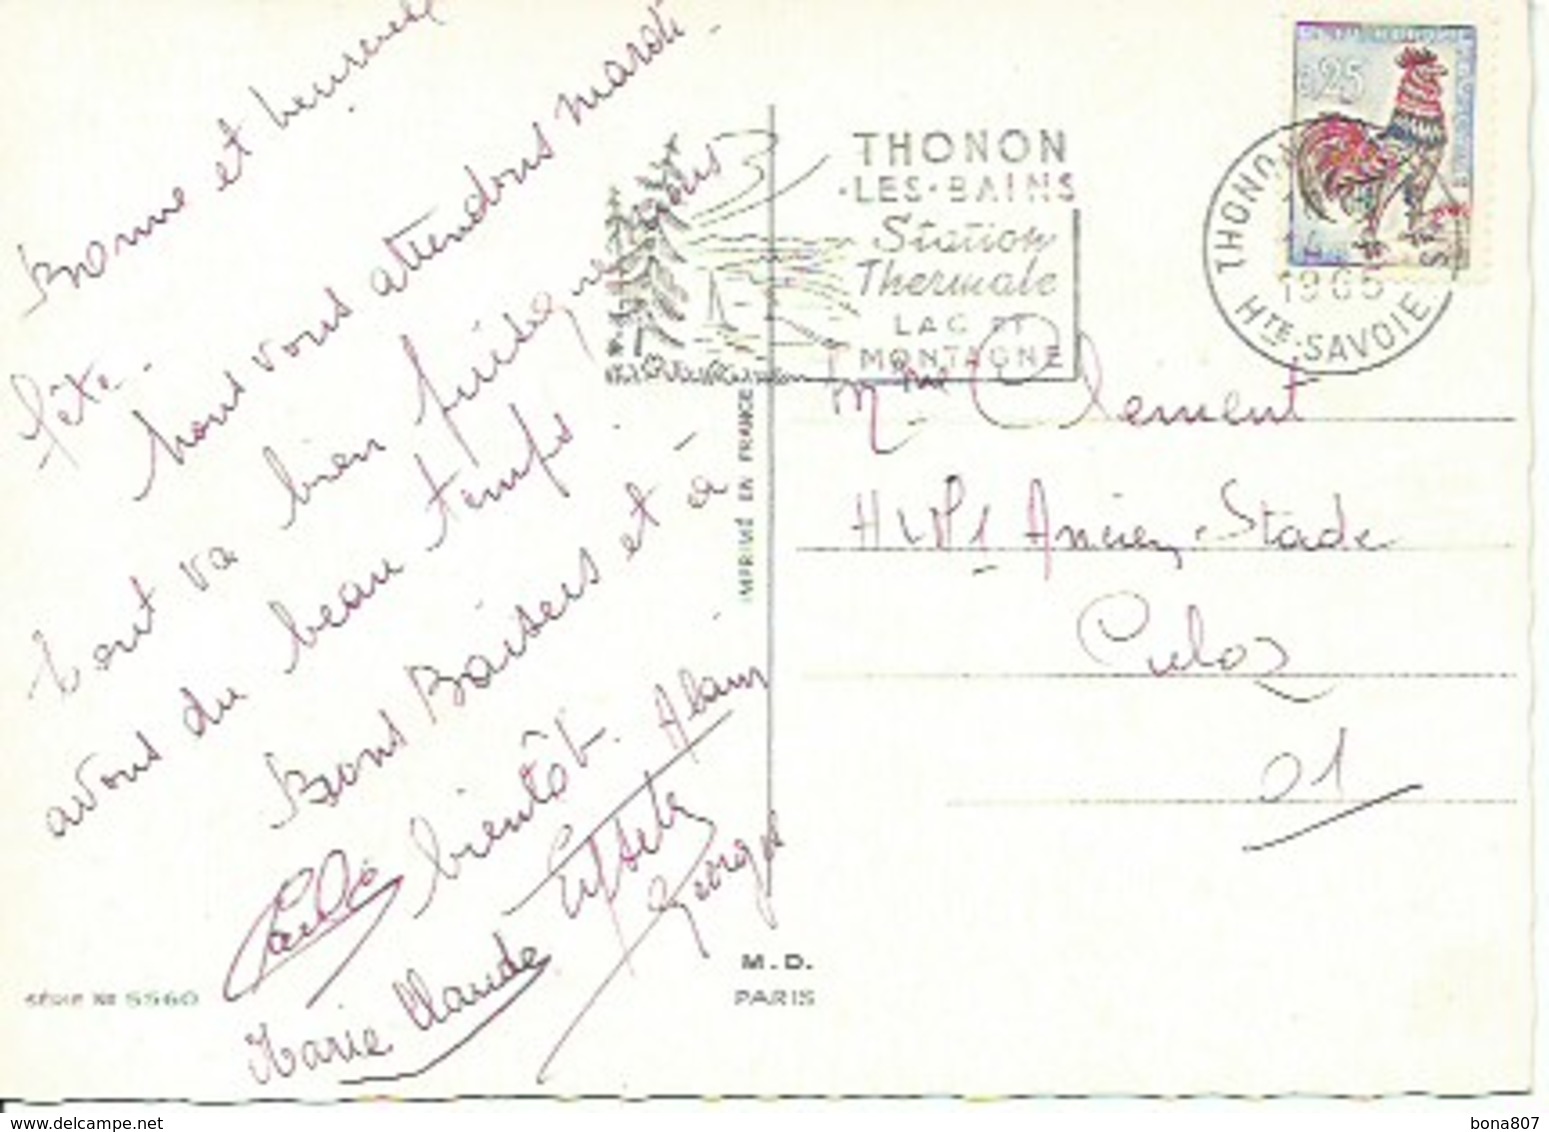 Bonne et heureuse
fête.
Nous vous attendons mardi.
tout va bien puisque nous
avons du beau temps.
Bons Baisers et à
bientôt. Alain
Marie Claude
George
SÉRIE No 5560
IMPRIMÉ EN FRANCE
M.D.
PARIS
THONON
·LES·BAINS
Station
Thermale
LAC ET
MONTAGNE
THONON
1965
HTE-SAVOIE
0,25
Mme Clement
HLM 1 Ancien Stade
Culoz
01
www.delcampe.net
bona807